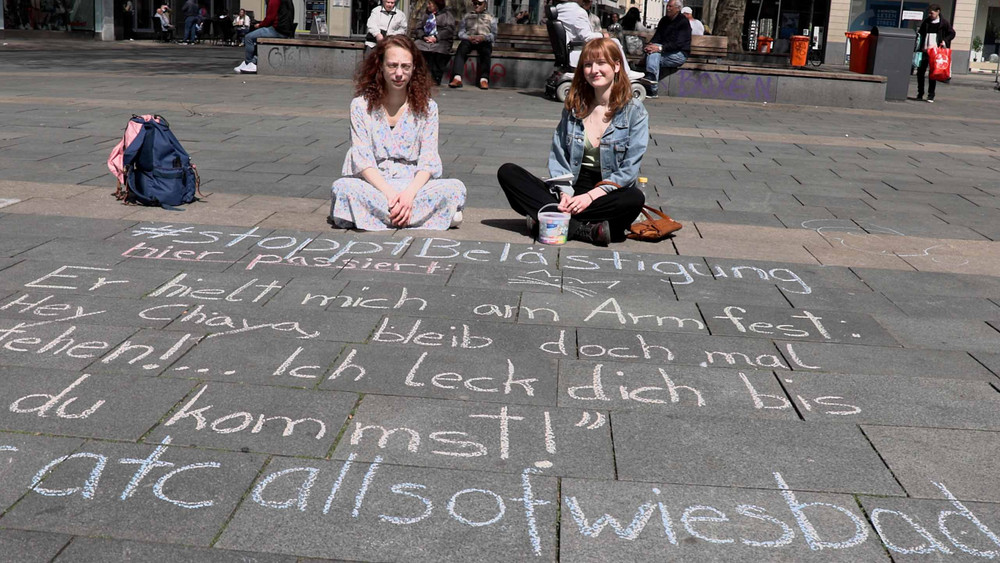 #stoppt Belästigung
hier passiert:
Er hielt mich am Arm fest:
Hey Chaya bleib doch mal
tehen!... Ich leck dich bis
du kommst!"
catcallsofwiesbad